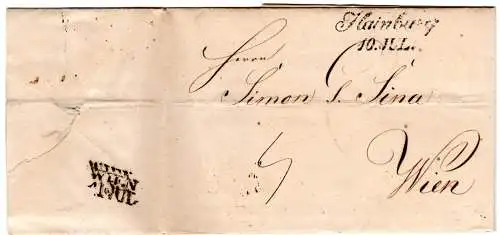 Hainburg
10. JUL.
Herrn
Simon S. Sina
Wien
WIEN
JUL